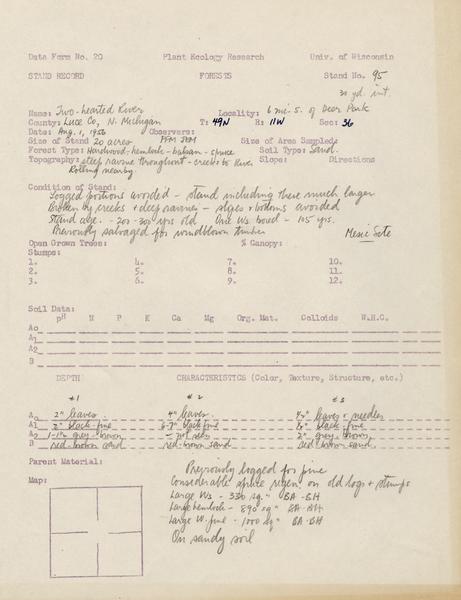 Data Form No. 20 Plant Ecology Research Univ. of Wisconsin
STAND RECORD FORESTS Stand No. 95
30 yd. int.
Name: Two-hearted River Locality: 6 mi. S. of Deer Park
County: Luce Co, N. Michigan T: 49N R: 11W Sec: 36
Date: Aug. 1, 1956 Observers:
Size of Stand 20 acres Size of Area Sampled:
Forest Type: Hardwood-hemlock-balsam-spruce Soil Type: Sand.
Topography: steep ravine throughout - creeks to River Slope: Directions
Rolling nearby.
Condition of Stand:
Logged portions avoided - stand including these much larger
Broken by creeks & deep ravine - slopes & bottoms avoided
Stand age - 200-300 yrs old One Ws bored - 105 yrs.
Previously salvaged for windblown timber
Mesic Site
Open Grown Trees: % Canopy:
Stumps:
1. 4. 7. 10.
2. 5. 8. 11.
3. 6. 9. 12.
Soil Data:
pH N P K Ca Mg Org. Mat. Colloids W.H.C.
Ao
A1
A2
B
DEPTH CHARACTERISTICS (Color, Texture, Structure, etc.)
#1 #2 #3
Ao 2" leaves 4" leaves leaves & needles
A1 2" black-fine 6-7" black fine black-fine
A2 1-1½" grey-brown - not seen 2" grey-brown
B red-brown sand red-brown sand red-brown sand
Parent Material:
Previously logged for pine
Map: Considerable spruce regen on old logs & stumps
Large Ws - 330 sq." BA-BH
Large hemlock - 890 sq" BA-BH
Large W. pine - 1000 sq" BA-BH
On sandy soil